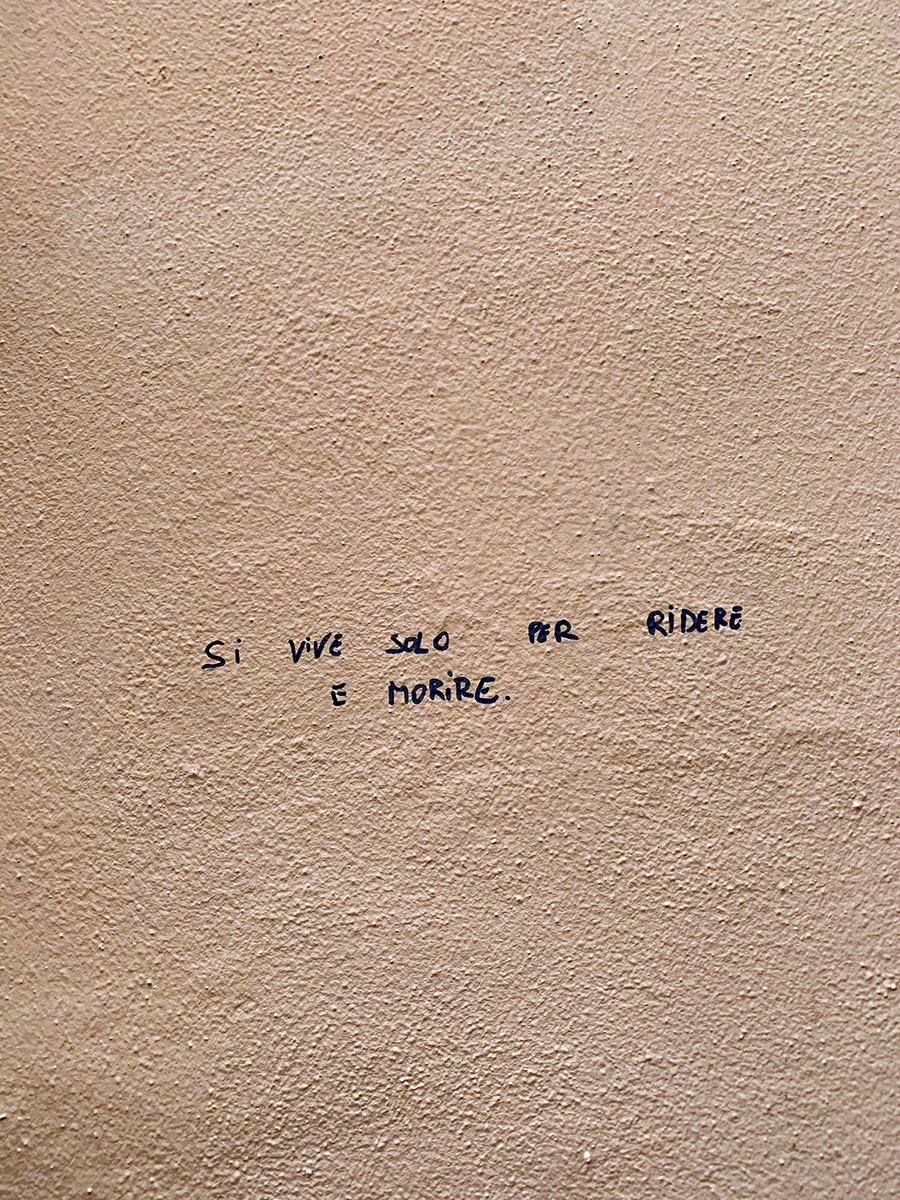 Si ViVE SOLO PER RiDERE
E MORiRE.